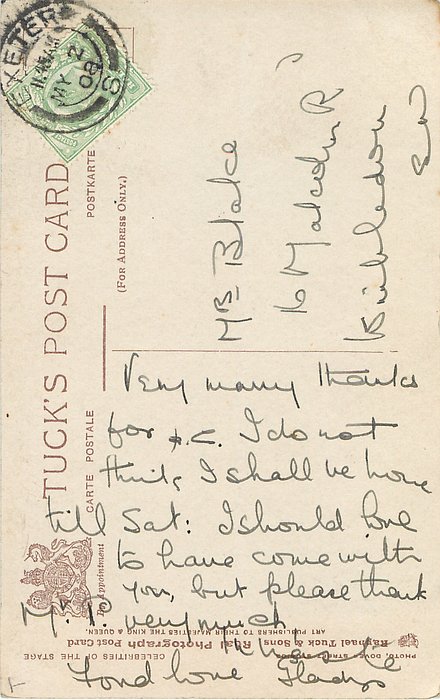 EXETER
11.45AM
MY 2
08
S
TUCK'S POST CARD
CARTE POSTALE
POSTKARTE
(FOR ADDRESS ONLY.)
By Appointment
Mrs Blake
16 Malcolm Rd
Wimbledon
SW
Very many thanks
for p.c. I do not
think I shall be home
till Sat: I should love
to have come with
you, but please thank
Mr P. very much
Fond love Gladys
CELEBRITIES OF THE STAGE
Raphael Tuck & Sons' Real Photograph Post Card
ART PUBLISHERS TO THEIR MAJESTIES THE KING & QUEEN.